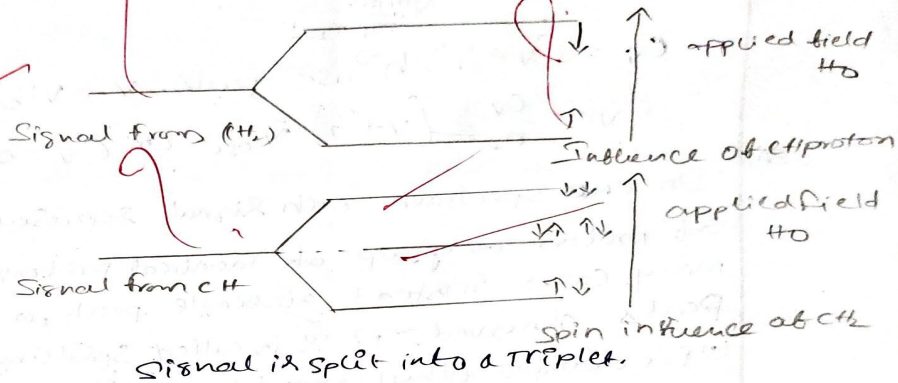 ↓ applied field
H0
Signal from (CH2)
↑
Influence of CH proton
↓↓
applied field
H0
↓↑ ↑↓
Signal from CH
↑↓
spin influence of CH2
Signal is split into a Triplet.